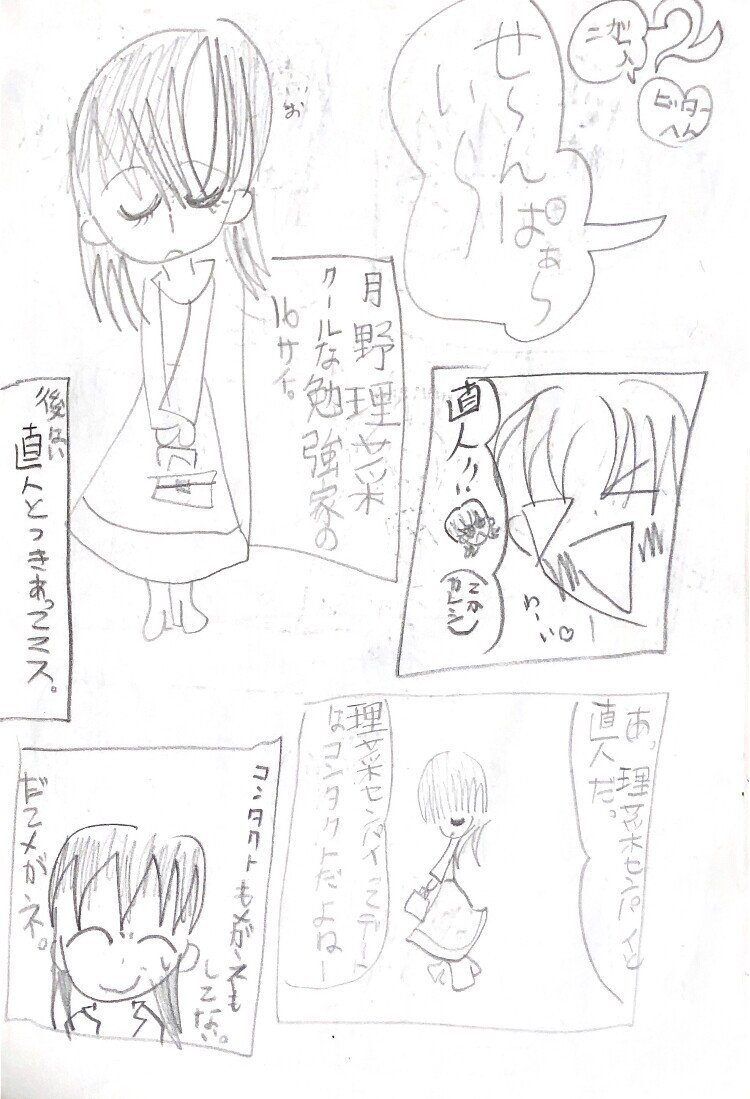 2
ビター
へん
せ〜んぱぁ〜
い〜
月野理菜
クールな勉強家の
16サイ。
直人!!
わーい♡
後ない
直人とつきあってマス。
あ。理菜センパイと
直人だ。
理菜センパイってデハ
はコンタクトだよねー
コンタクトもメガネも
してない。
だてメガネ。